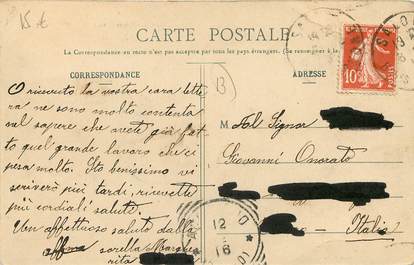 15 €
CARTE POSTALE
La Correspondance au recto n'est pas acceptée par tous les pays étrangers. (Se renseigner à la
CORRESPONDANCE
ADRESSE
13
10
POSTES
SALO
O ricevuto la vostra cara lette
ra ne sono molto contenta
nel sapere che avete già fat
to quel grande lavoro che ci
pesa molto. Sto benissimo vi
scriverò più tardi, ricevete
più cordiali saluti.
Un affettuoso saluto dalla
sorella Marghe
rita
M Al Signor
Giovanni Onorato
Italia
12
16